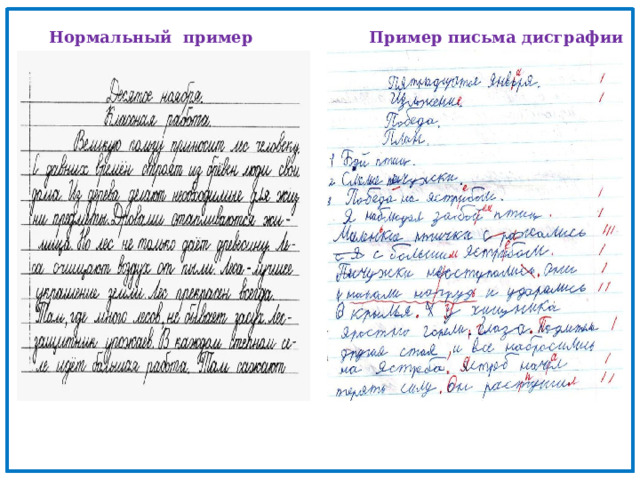 Нормальный пример
Десятое ноября.
Классная работа
Великую пользу приносит лес человеку.
С давних времён строят из брёвен люди свои
дома. Из дерева делают необходимые для жиз
ни предметы. Дровами отапливаются жи-
лища. Но лес не только даёт древесину. Ле-
са очищают воздух от пыли. Леса - лучшее
украшение земли. Лес прекрасен всегда.
Там, где много лесов, не бывает засух. Лес-
защитник урожаев. В каждом степном се-
ле идёт большая работа. Там сажают
Пример письма дисграфии
Пятнадцатое января.
Изложение
Победа.
План.
1 Бой птиц.
2 Слова пичужки.
3 Победа на ястребом.
Я наблюдал за бой птиц.
Маленкая птичка сражались
с большим ястребом.
Пичужки не
и ударялись
в крылья. У хищника
яростно горели глаза.
стая, и все набросились
на ястреба. Ястреб начал
терять силу. Он